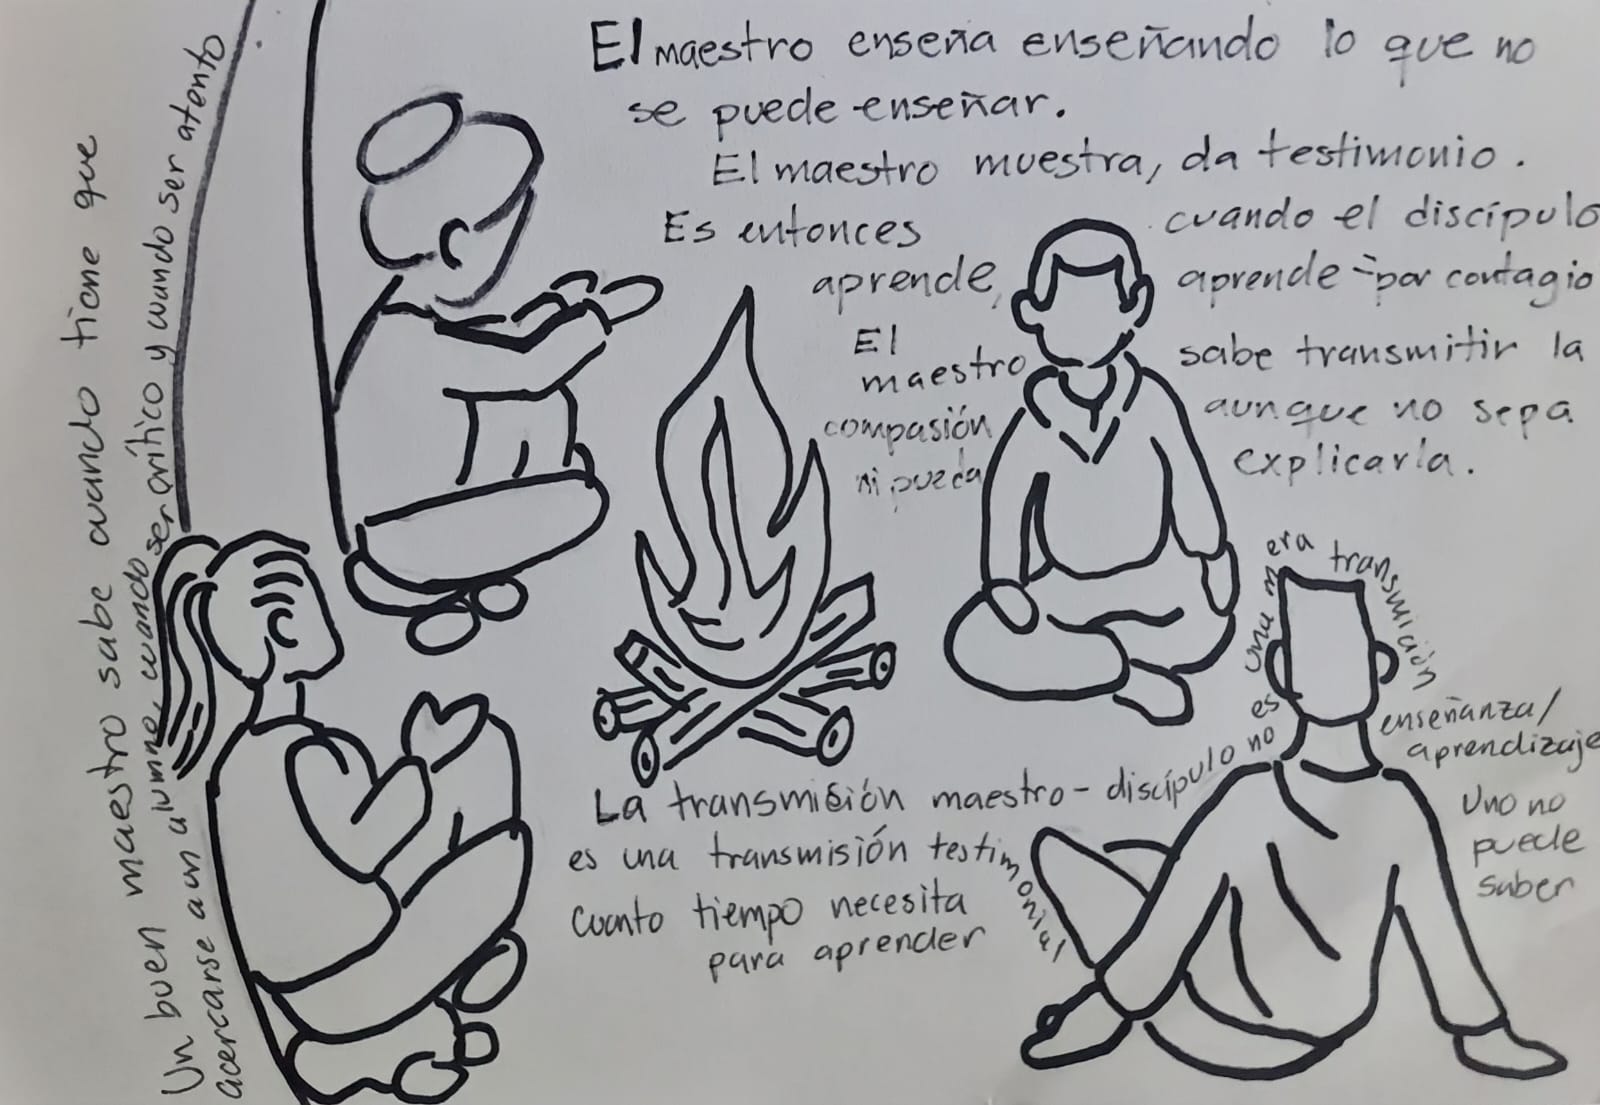 El maestro enseña enseñando lo que no
se puede enseñar.
El maestro muestra, da testimonio.
Es entonces cuando el discípulo
aprende, aprende - por contagio
El
maestro sabe transmitir la
compasión aunque no sepa
ni pueda explicarla.
La transmisión maestro - discípulo no es una mera transmisión
enseñanza/
aprendizaje
es una transmisión testimonial
Uno no
puede
saber
cuanto tiempo necesita
para aprender
Un buen maestro sabe cuando tiene que
acercarse a un alumno, cuando ser crítico y cuando ser atento